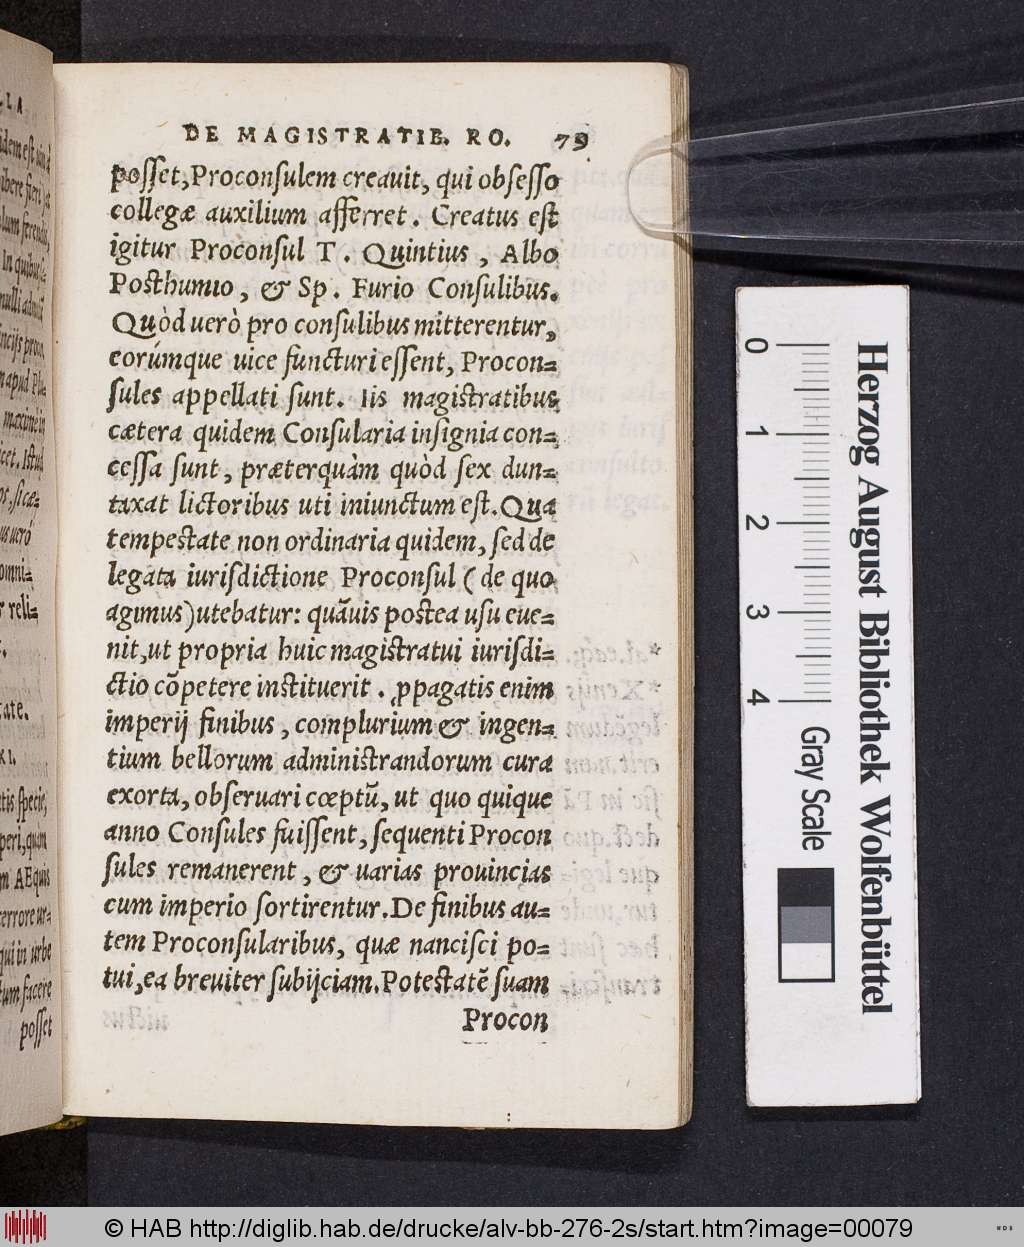 DE MAGISTRATIB. RO. 79
posset, Proconsulem creauit, qui obsesso
collegæ auxilium afferret. Creatus est
igitur Proconsul T. Quintius, Albo
Posthumio, & Sp. Furio Consulibus.
Quòd uerò pro consulibus mitterentur,
eorúmque uice functuri essent, Procon=
sules appellati sunt. Iis magistratibus
cætera quidem Consularia insignia con=
cessa sunt, præterquàm quòd sex dun=
taxat lictoribus uti iniunctum est. Qua
tempestate non ordinaria quidem, sed de
legata iurisdictione Proconsul (de quo
agimus) utebatur: quãuis postea usu eue=
nit, ut propria huic magistratui iurisdi=
ctio cõpetere instituerit. ꝓpagatis enim
imperij finibus, complurium & ingen=
tium bellorum administrandorum cura
exorta, obseruari cœptũ, ut quo quique
anno Consules fuissent, sequenti Procon
sules remanerent, & uarias prouincias
cum imperio sortirentur. De finibus au=
tem Proconsularibus, quæ nancisci po=
tui, ea breuiter subijciam. Potestatẽ suam
Procon
posset
0 1 2 3 4 Gray Scale
Herzog August Bibliothek Wolfenbüttel
© HAB http://diglib.hab.de/drucke/alv-bb-276-2s/start.htm?image=00079